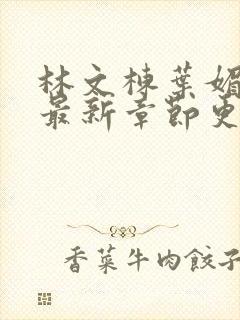 林文棟葉媚
最新章節更
香菜牛肉餃子